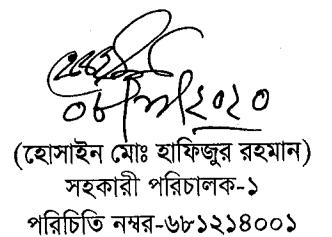 (হোসাইন মোঃ হাফিজুর রহমান)
সহকারী পরিচালক-১
পরিচিতি নম্বর-৬৮১২১৪০০১